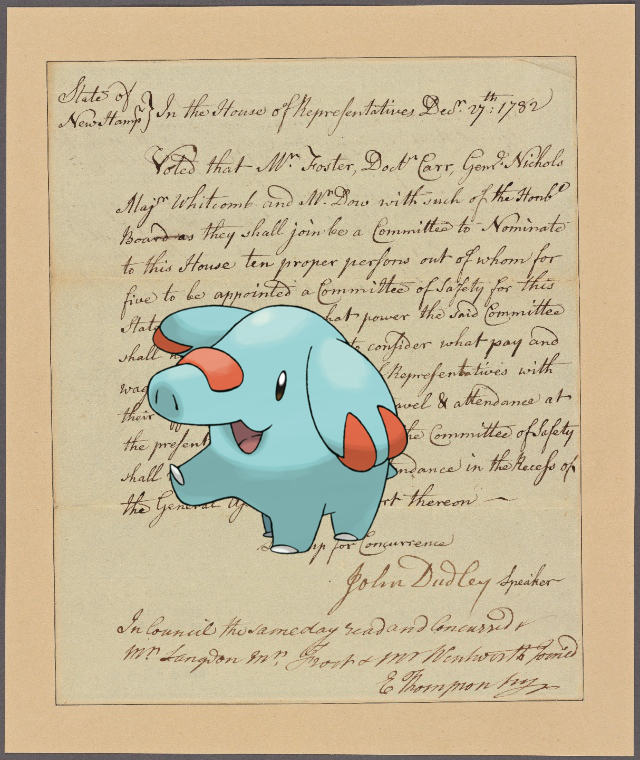 State of
New Hampr } In the House of Representatives Decr. 27th: 1782
Voted that Mr Foster, Doctr Carr, Genl. Nichols
Majr Whitcomb and Mr Dow with such of the Honble
Board as they shall join be a Committee to Nominate
to this House ten proper persons out of whom for
five to be appointed a Committee of Safety for this
State hat power the said Committee
shall consider what pay and
Representatives with
their avel & attendance at
the present he Committee of Safety
shall ndance in the Recess of
the General rt thereon —
up for Concurrence
John Dudley Speaker
In Council the same day read and Concurred &
Mr. Langdon Mr. Frost & Mr Wentworth Joined
E Thompson Secy